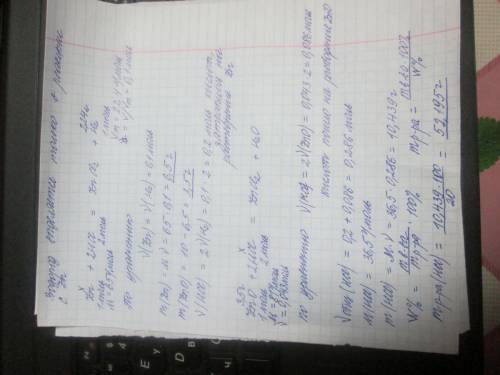 Водород выделяется только в реакции
с Zn
x 2,24л
Zn + 2HCl = ZnCl₂ + H₂
1моль 2моль 1моль
M=65г/моль Vm=22,4л/моль
по уравнению ν(Zn) = ν(H₂) = 0,1 моль
m(Zn) = M·ν = 65·0,1 = 6,5г
m(ZnO) = 10 - 6,5 = 3,5г
ν(HCl) = 2ν(H₂) = 0,1·2 = 0,2 моль
растворение Zn
3,5г x
ZnO + 2HCl = ZnCl₂ + H₂O
1моль 2моль
ν=0,043моль
по уравнению ν(HCl) = 2ν(ZnO) = 0,043·2 = 0,086 моль
только на растворение ZnO
νобщ(HCl) = 0,2 + 0,086 = 0,286 моль
M(HCl) = 36,5г/моль
m(HCl) = M·ν = 36,5·0,286 = 10,439г
W% = mв-ва/mр-ра · 100% mр-ра = mв-ва·100%/W%
mр-ра(HCl) = 10,439·100/20 = 52,195г